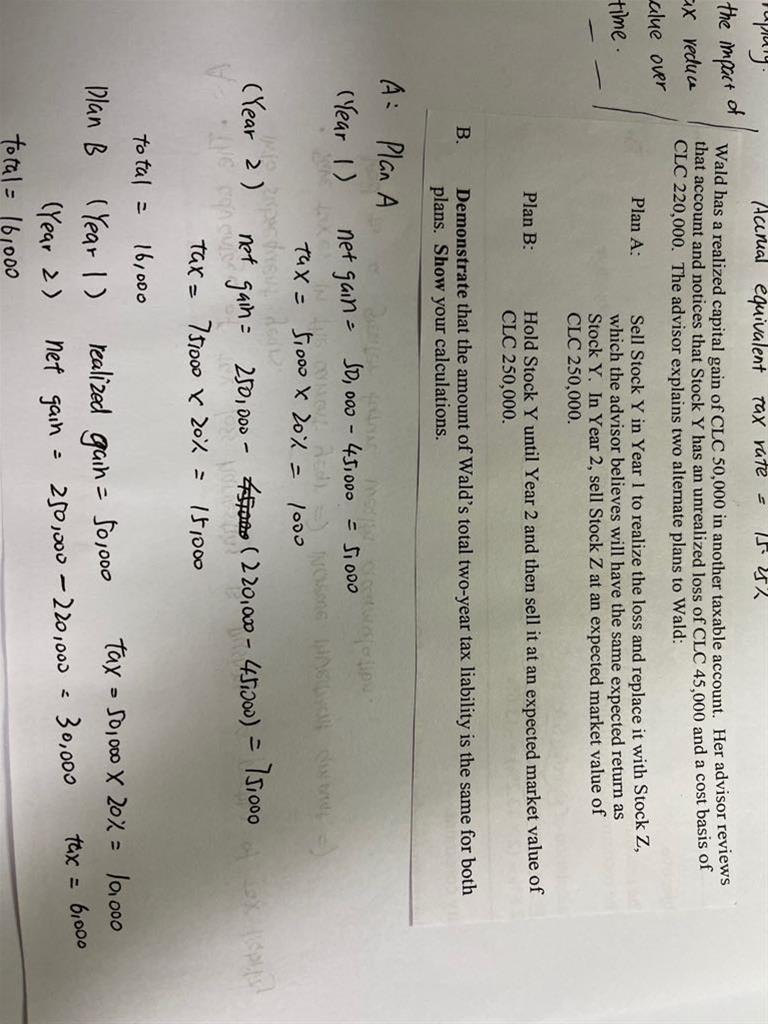 Accrual equivalent tax rate = 15.25%
the impact of
ax reduce
alue over
time.
Wald has a realized capital gain of CLC 50,000 in another taxable account. Her advisor reviews
that account and notices that Stock Y has an unrealized loss of CLC 45,000 and a cost basis of
CLC 220,000. The advisor explains two alternate plans to Wald:
Plan A: Sell Stock Y in Year 1 to realize the loss and replace it with Stock Z,
which the advisor believes will have the same expected return as
Stock Y. In Year 2, sell Stock Z at an expected market value of
CLC 250,000.
Plan B: Hold Stock Y until Year 2 and then sell it at an expected market value of
CLC 250,000.
B. Demonstrate that the amount of Wald's total two-year tax liability is the same for both
plans. Show your calculations.
A: Plan A
(Year 1) net gain = 50,000 - 45,000 = 5,000
tax = 5,000 x 20% = 1000
(Year 2) net gain = 250,000 - (220,000 - 45,000) = 75,000
tax = 75,000 x 20% = 15,000
total = 16,000
Plan B (Year 1) realized gain = 50,000 tax = 50,000 x 20% = 10,000
(Year 2) net gain = 250,000 - 220,000 = 30,000 tax = 6,000
total = 16,000